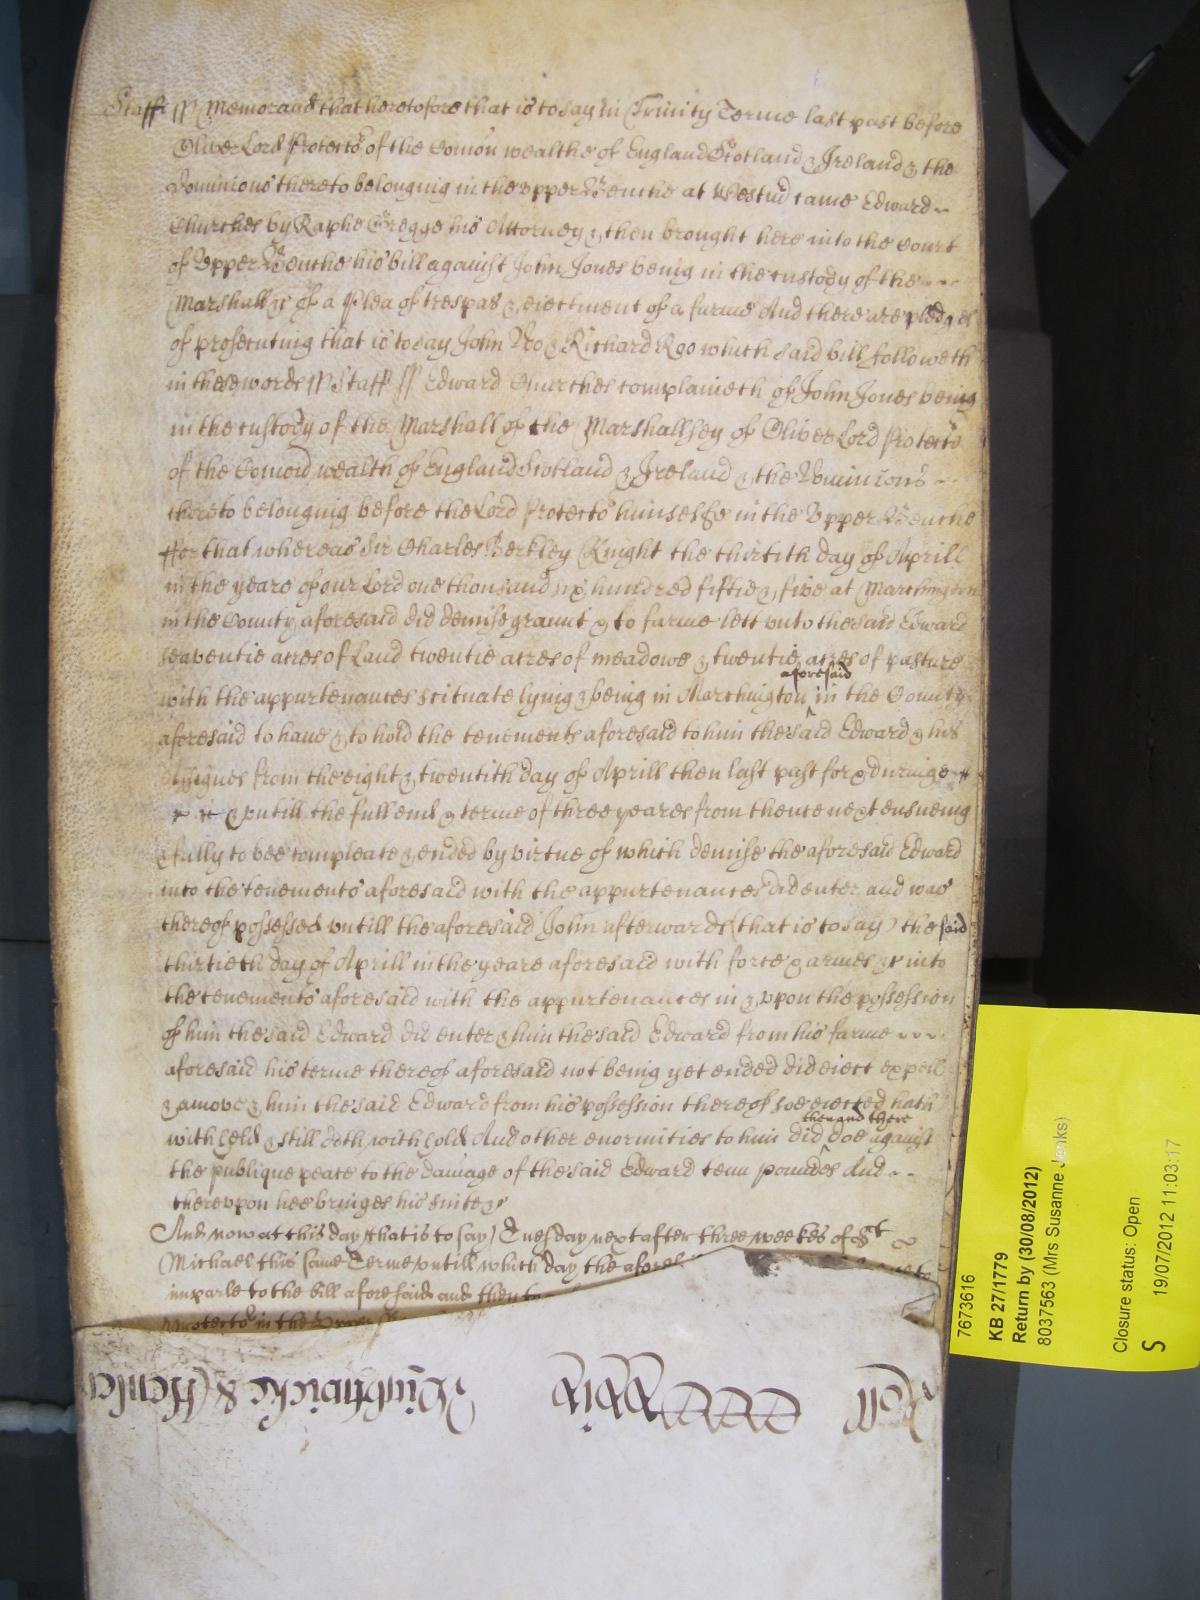 Staff ss Memorand that heretofore that is to say in Trinity Terme last past before
Oliver Lord Protector of the Comon wealthe of England Scotland & Ireland & the
Dominions thereto belonging in the upper Benche at Westm̃ came Edward
Churches by Raphe Gregge his Attorney & then brought here into the Court
of Vpper Benche his bill against John Jones being in the custody of the
Marshall &c of a Plea of trespas & eiectment of a farme And there are pledges
of prosecuting that is to say John Doo & Richard Roo which said bill followeth
in these words ss Staff ss Edward Churches complaineth of John Jones being
in the custody of the Marshall of the Marshallsey of Oliver Lord Protector
of the Comon wealth of England Scotland & Ireland & the Dominions
thereto belonging before the Lord Protector himselfe in the Vpper Benche
ffor that whereas Sir Charles Berkley Knight the thirtith day of Aprill
in the yeare of our Lord one thousand six hundred fiftie & five at Marchington
in the County aforesaid did demise graunt & to farme lett vnto the said Edward
seaventie acres of Land twentie acres of meadowe & twentie acres of pasture
with the appurtenances scituate lying & being in Marchington aforesaid in the County
aforesaid to haue & to hold the tenements aforesaid to him the said Edward & his
Assignes from the eight & twentith day of Aprill then last past for & duringe
& vntill the full end & terme of three yeares from thence next ensueing
& fully to bee compleate & ended by virtue of which demise the aforesaid Edward
into the tenements aforesaid with the appurtenances did enter and was
thereof possessed vntill the aforesaid John afterwards (that is to say) the said
thirtieth day of Aprill in the yeare aforesaid with force & armes &c into
the tenements aforesaid with the appurtenances in & vpon the possession
of him the said Edward did enter & him the said Edward from his farme
aforesaid his terme thereof aforesaid not being yet ended did eiect expell
& amove & him the said Edward from his possession thereof soe eiected hath
with held & still doth with hold And other enormities to him then and there did doe against
the publique peace to the damage of the said Edward tenn pounds And
therevpon hee bringes his suite &c
And now at this day (that is to say) Tuesday next after three weekes of St
Michael this same Terme vntill which day the afores
imparle to the bill aforesaid and then to
Protector in the Vpper
Roll
& Henley
7673616
KB 27/1779
Return by (30/08/2012)
8037563 (Mrs Susanne Jenks)
Closure status: Open
S 19/07/2012 11:03:17